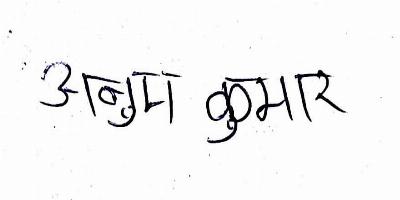 अनुम कुमार